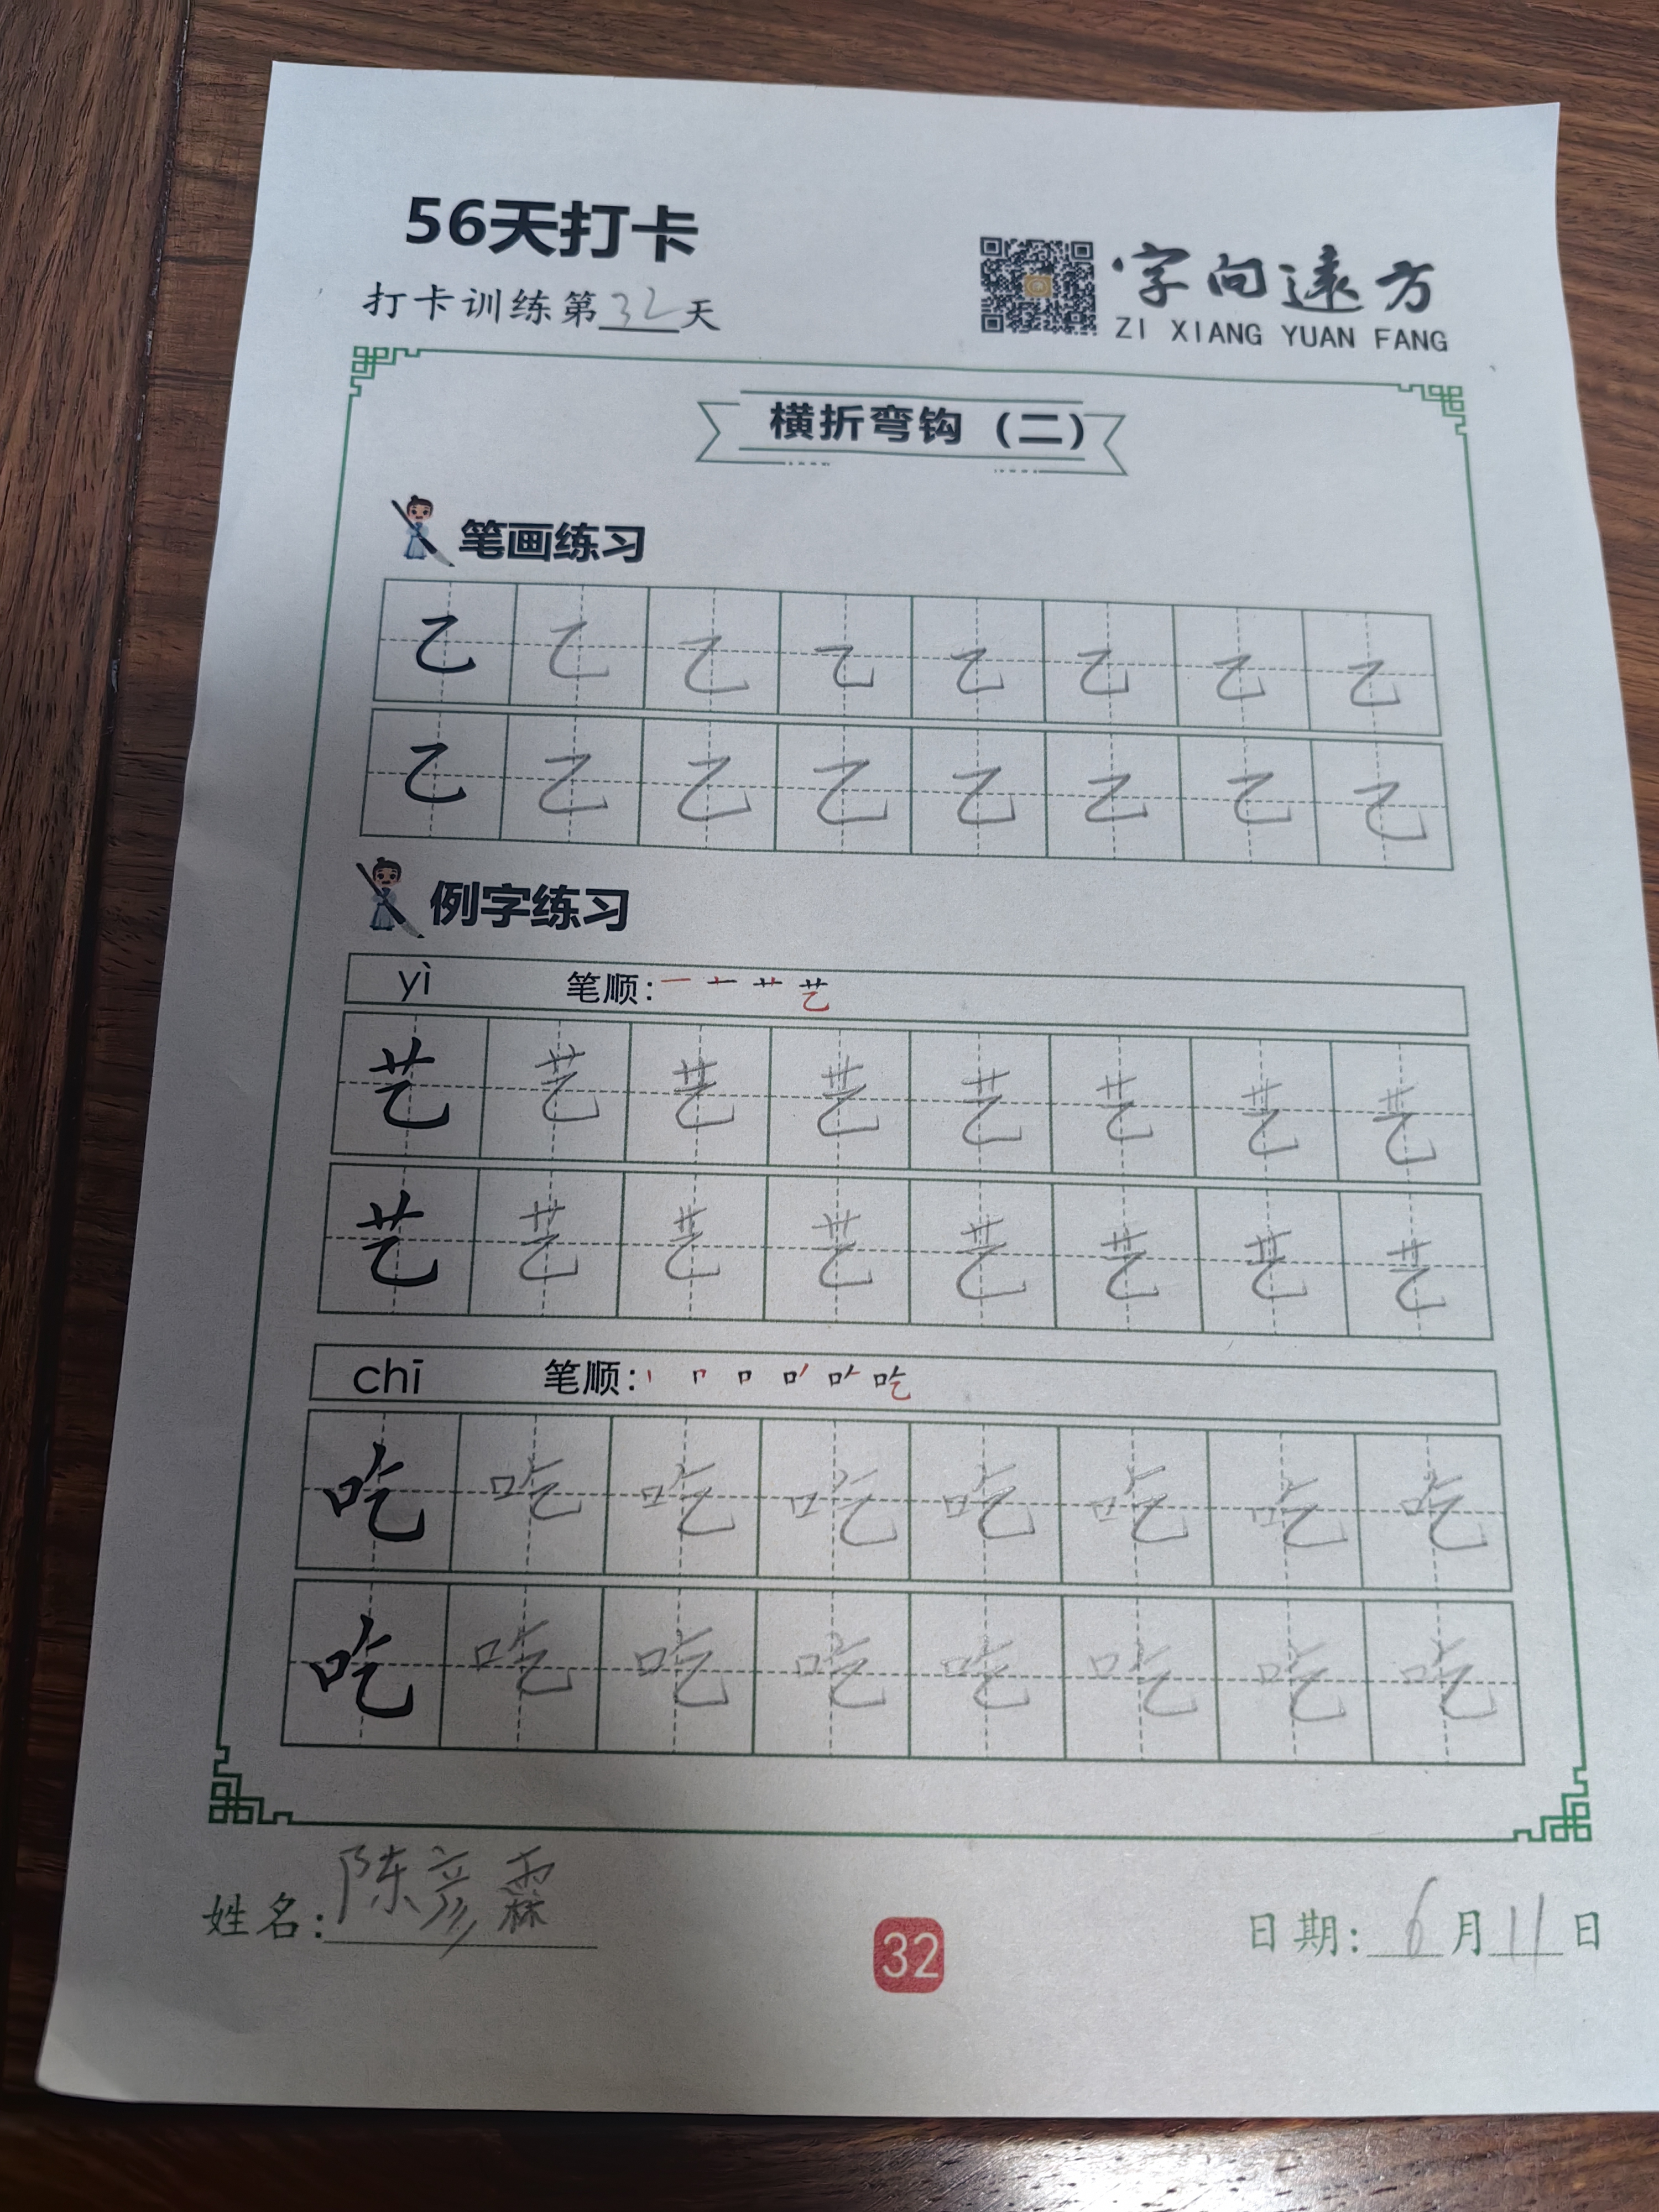 56天打卡
打卡训练第32天
字向遠方
ZI XIANG YUAN FANG
横折弯钩（二）
笔画练习
乙 乙 乙 乙 乙 乙 乙 乙
乙 乙 乙 乙 乙 乙 乙 乙
例字练习
yì 笔顺: 一 艹 艺
艺 艺 艺 艺 艺 艺 艺 艺
艺 艺 艺 艺 艺 艺 艺 艺
chī 笔顺: 丨 口 吃
吃 吃 吃 吃 吃 吃 吃 吃
吃 吃 吃 吃 吃 吃 吃 吃
姓名: 陈彦霖
32
日期: 6月11日